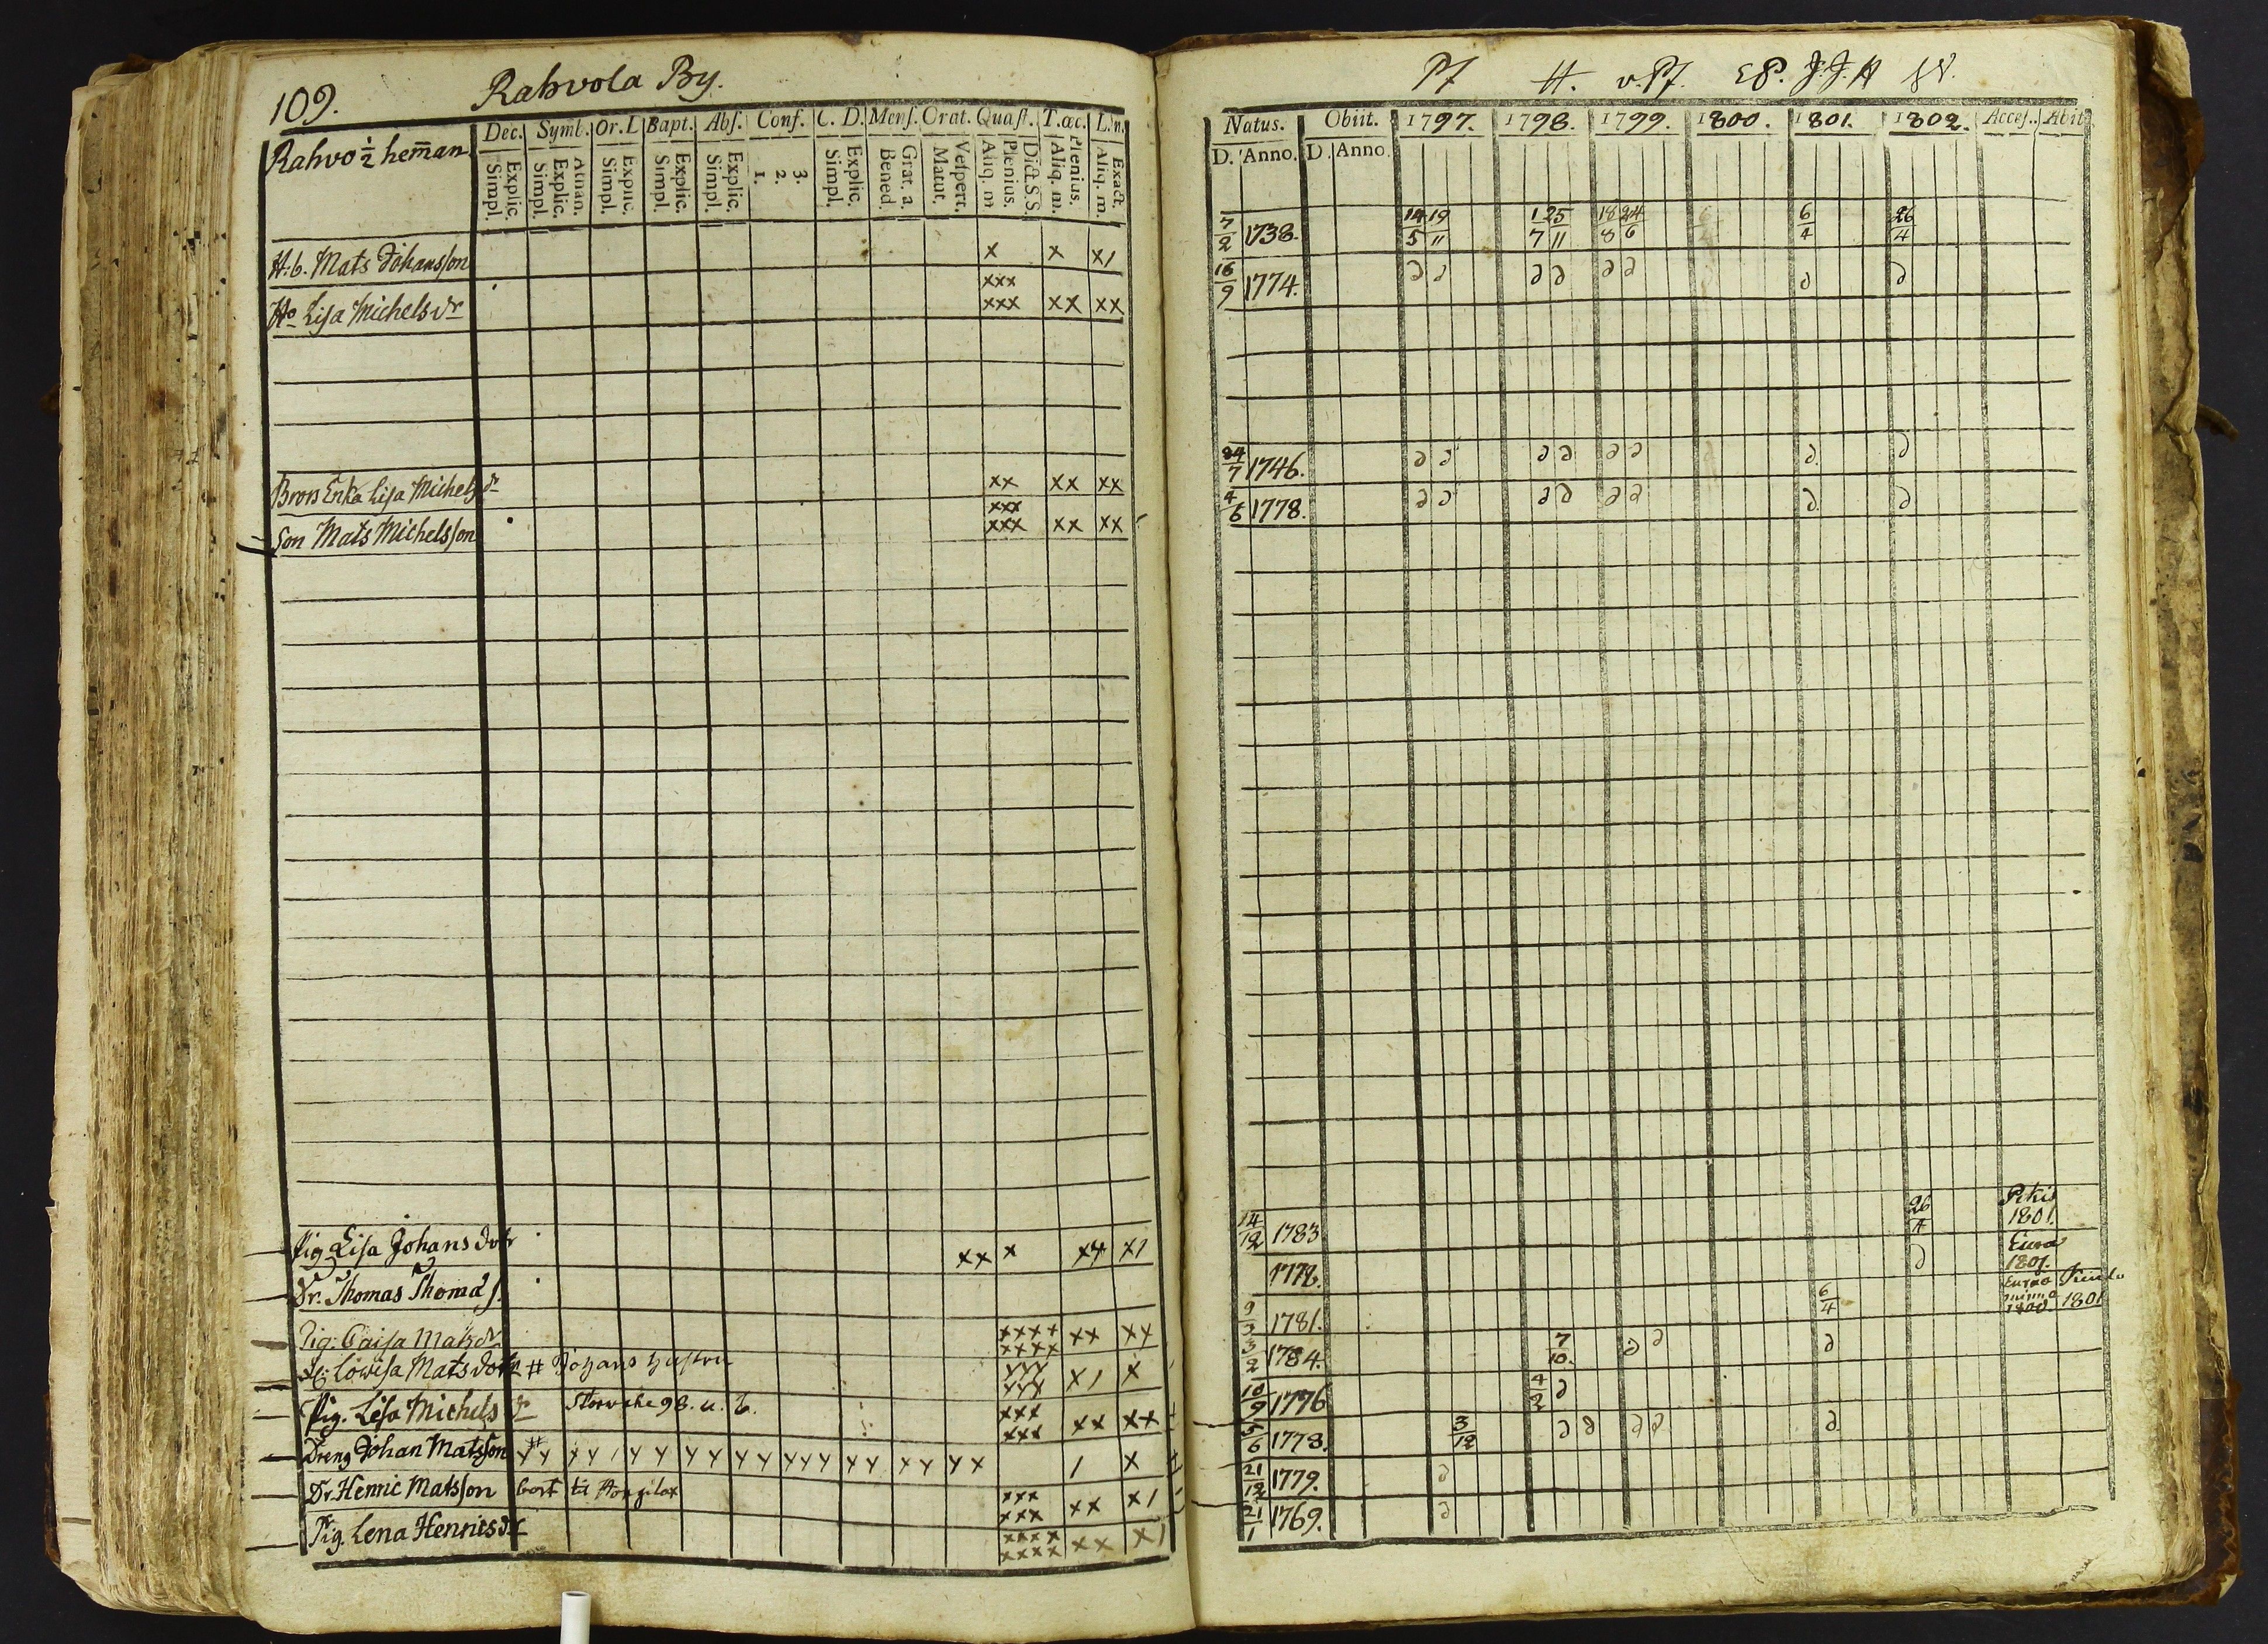 109. Rahvola By.
Rahvo ½ heman
Dec. Symb. Or. D Bapt. Abs. Conf. C. D. Mens. Orat. Quæst. T. œc. L. n.
Explic. Simpl. Athan. Explic. Simpl. Explic. Simpl. Explic. Simpl. Explic. Simpl. 3. 2. 1. Explic. Simpl. Grat. a. Bened. Vespert. Matut. Dict. S. S. Plenius. Aliq. m. Plenius. Aliq. m. Exact. Aliq. m.
H: b. Mats Johansson x x x/
Ho Lisa Michelsdr xxx xxx xx xx
Brors Enka Lisa Michelsdr xx xx xx
Son Mats Michelsson xxx xxx xx xx
Pig. Lisa Johans dotr xx x xx x/
Dr. Thomas Thomas s.
Pig: Caisa Matsdr xxxx xxxx xx xx
Lowisa Matsdotr # Johans hustru yyy yyy x/ x
Pig. Lisa Michels dr 98. xxx xxx xx xx
Dreng Johan Matsson
Dr. Henric Matsson bort xxx xxx xx x/
Pig. Lena Henricsdr xxxx xxxx xx x/
Natus. Obiit. 1797. 1798. 1799. 1800. 1801. 1802. Acces. Abit
D. Anno. D. Anno.
7/2 1738. 14/5 19/11 1/7 25/11 18/8 24/6 6/4 26/4
16/9 1774.
24/7 1746.
4/6 1778.
14/12 1783 26/4 1801.
1772. Eura 1801.
9/3 1781. 6/4 1800 1801
3/2 1784. 7/10.
10/9 1776 4/2
5/6 1778. 3/12
21/12 1779.
21/1 1769.